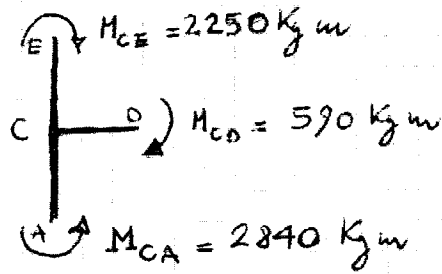 E M_CE = 2250 Kg m
C D M_CD = 590 Kg m
A M_CA = 2840 Kg m